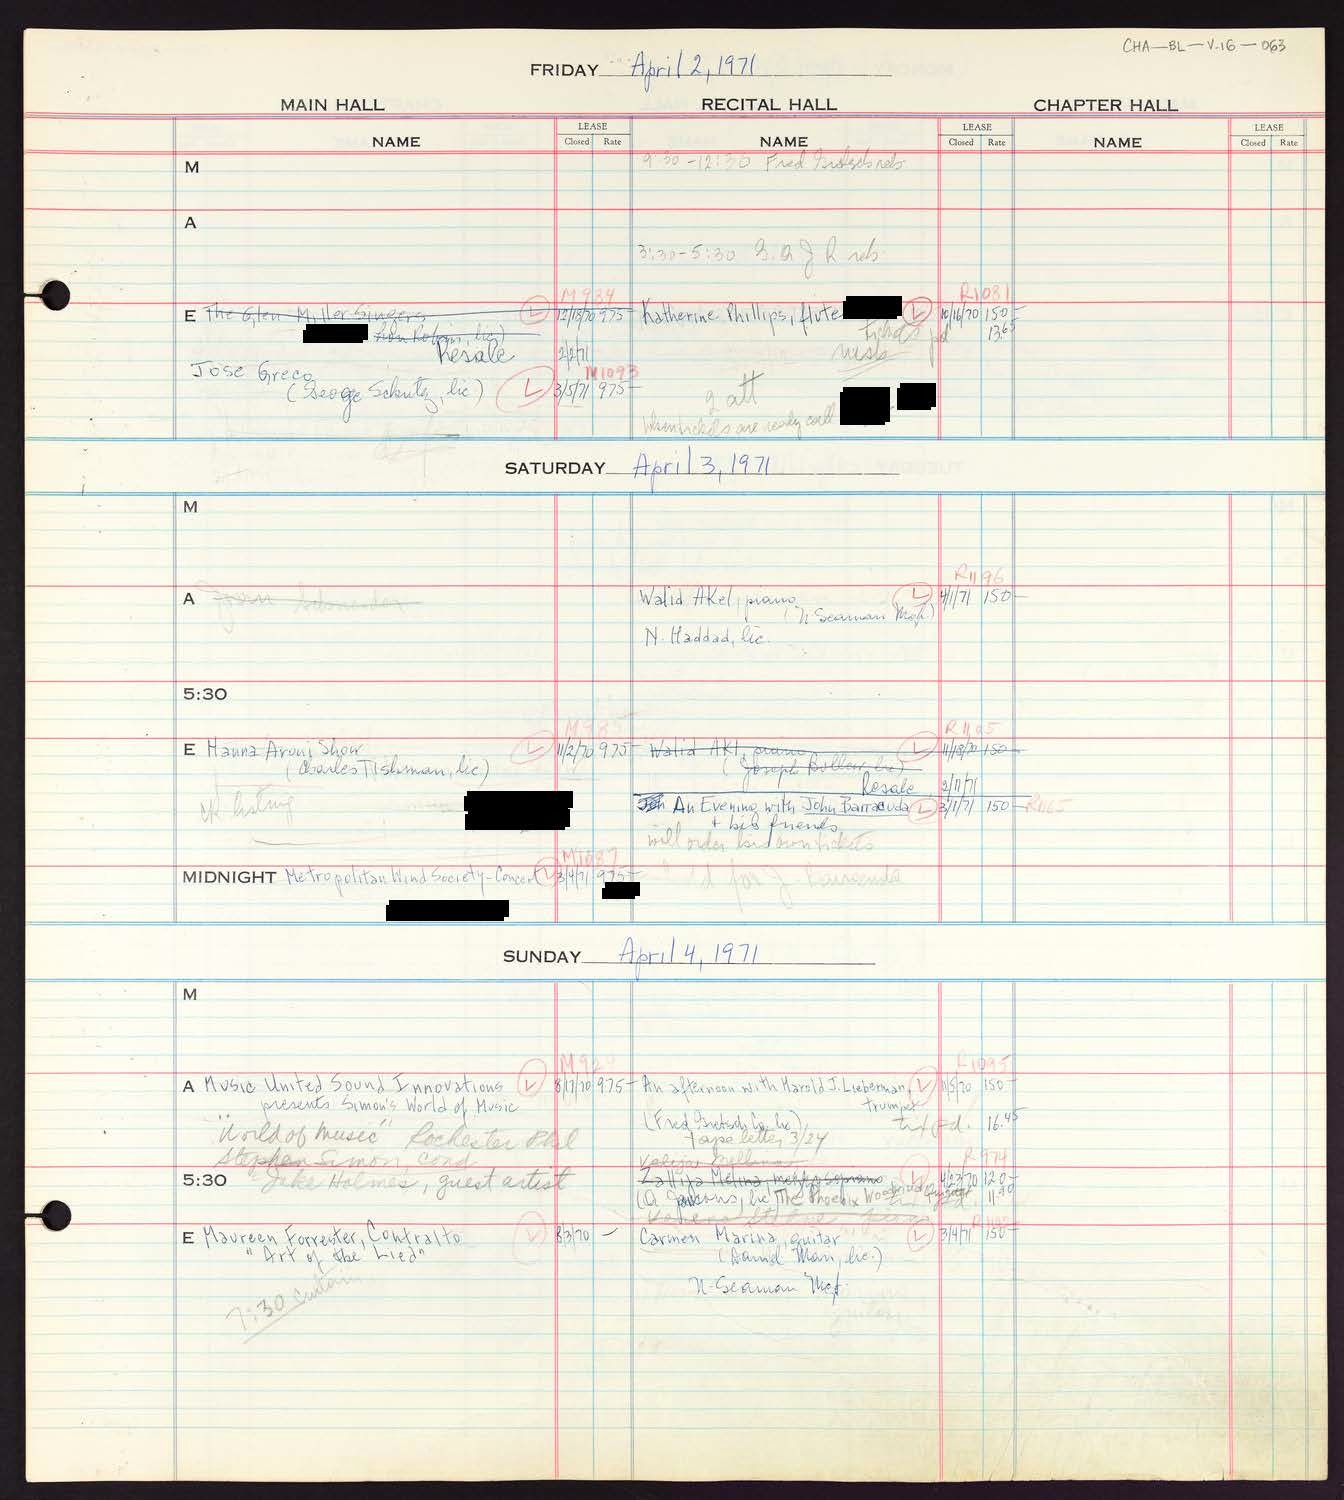 CHA-BL-V.16-063
FRIDAY April 2, 1971
MAIN HALL RECITAL HALL CHAPTER HALL
NAME LEASE Closed Rate NAME LEASE Closed Rate NAME LEASE Closed Rate
M 9:30-12:30 Fred Gretsch reh.
A
3:30-5:30
M934 R1031
E The Glen Miller Singers 12/18/70 975- Katherine Phillips, flute 10/16/70 150-
13.65
Resale 2/2/71
M1093
Jose Greco
(George Schutz, lic) 3/5/71 975- 2 att
When tickets are ready call
SATURDAY April 3, 1971
M
R1196
A Walid Akel, piano 4/1/71 150-
(N Seaman Mgt.)
N. Haddad, lic.
5:30
M985 R1105
E Hanna Aroni Show 11/2/70 975- Walid Akl, piano 11/18/70 150-
(Charles Tishman, lic) (Joseph Bollew lic)
Resale 2/17/71
ok listing An Evening with John Barracuda 3/1/71 150- R1165
+ his friends
will order his own tickets
M1087
MIDNIGHT Metropolitan Wind Society-Concert 3/4/71 975- Hold for J. Barracuda
SUNDAY April 4, 1971
M
M929 R1095
A Music United Sound Innovations 8/17/70 975- An afternoon with Harold J. Lieberman, 11/5/70 150-
presents Simon's World of Music trumpet
"World of Music" Rochester Phil (Fred Gretsch Co. lic) txt pd. 16.45
Stephen Simon, cond tape letter 3/24
R974
5:30 Jake Holmes, guest artist mezzo soprano 4/23/70 120-
The Phoenix Woodwind Quintet 11.90
E Maureen Forrester, Contralto 8/3/70 - Carmen Marina, guitar 3/4/71 150-
"Art of the Lied" (David Man, lic.)
N-Seaman Mgt.
7:30 curtain